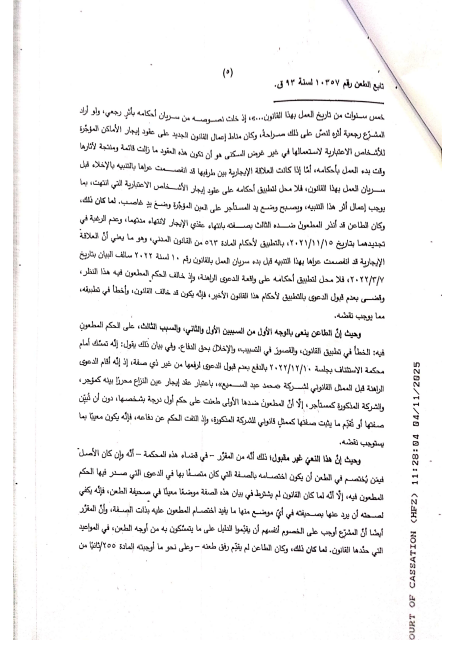 (٥)
تابع الطعن رقم ١٠٣٥٧ لسنة ٩٣ ق.
خمس سنوات من تاريخ العمل بهذا القانون...»، إذ خلت نصوصه من سريان أحكامه بأثر رجعي، ولو أراد
المشرّع رجعية أثره لنصّ على ذلك صراحةً، وكان مناط إعمال القانون الجديد على عقود إيجار الأماكن المؤجّرة
للأشخاص الاعتبارية لاستعمالها في غير غرض السكنى هو أن تكون هذه العقود ما زالت قائمة ومنتجة لآثارها
وقت بدء العمل بأحكامه، أمّا إذا كانت العلاقة الإيجارية بين طرفيها قد انفصمت عراها بالتنبيه بالإخلاء قبل
سريان العمل بهذا القانون، فلا محل لتطبيق أحكامه على عقود إيجار الأشخاص الاعتبارية التي انتهت، بما
يوجب إعمال أثر هذا التنبيه، ويصبح وضع يد المستأجر على العين المؤجّرة وضع يدٍ غاصب. لما كان ذلك،
وكان الطاعن قد أنذر المطعون ضده الثالث بصفته بانتهاء عقدَي الإيجار لانتهاء مدتهما، وعدم الرغبة في
تجديدهما بتاريخ ٢٠٢١/١١/١٥، بالتطبيق لأحكام المادة ٥٦٣ من القانون المدني، وهو ما يعني أنّ العلاقة
الإيجارية قد انفصمت عراها بهذا التنبيه قبل بدء سريان العمل بالقانون رقم ١٠ لسنة ٢٠٢٢ سالف البيان بتاريخ
٢٠٢٢/٣/٧، فلا محل لتطبيق أحكامه على واقعة الدعوى الراهنة، وإذ خالف الحكم المطعون فيه هذا النظر،
وقضى بعدم قبول الدعوى بالتطبيق لأحكام هذا القانون الأخير، فإنّه يكون قد خالف القانون، وأخطأ في تطبيقه،
مما يوجب نقضه.
وحيث إنّ الطاعن ينعى بالوجه الأول من السببين الأول والثاني، والسبب الثالث، على الحكم المطعون
فيه: الخطأ في تطبيق القانون، والقصور في التسبيب، والإخلال بحق الدفاع، وفي بيان ذلك يقول: إنّه تمسّك أمام
محكمة الاستئناف بجلسة ٢٠٢٢/١٢/١٠ بالدفع بعدم قبول الدعوى لرفعها من غير ذي صفة، إذ إنّه أقام الدعوى
الراهنة قِبل الممثل القانوني لشركة «محمد عبد السميع»، باعتبار عقد إيجار عين النزاع محررًا بينه كمؤجر،
والشركة المذكورة كمستأجر، إلّا أنّ المطعون ضدها الأولى طعنت على حكم أول درجة بشخصها، دون أن تُبيّن
صفتها أو تُقدِّم ما يثبت صفتها كممثلٍ قانوني للشركة المذكورة، وإذ التفت الحكم عن دفاعه، فإنّه يكون معيبًا بما
يستوجب نقضه.
وحيث إنّ هذا النعي غير مقبول؛ ذلك أنّه من المقرّر – في قضاء هذه المحكمة – أنّه وإن كان الأصل
فيمن يُختصم في الطعن أن يكون اختصامه بالصفة التي كان متصفًا بها في الدعوى التي صدر فيها الحكم
المطعون فيه، إلّا أنّه لما كان القانون لم يشترط في بيان هذه الصفة موضعًا معينًا في صحيفة الطعن، فإنّه يكفي
لصحته أن يرد عنها بصحيفته في أيّ موضع منها ما يفيد اختصام المطعون عليه بذات الصفة، وأنّ المقرّر
أيضًا أنّ المشرّع أوجب على الخصوم أنفسهم أن يقيموا الدليل على ما يتمسّكون به من أوجه الطعن، في المواعيد
التي حدّدها القانون. لما كان ذلك، وكان الطاعن لم يقدّم رفق طعنه – وعلى نحو ما أوجبته المادة ٢٥٥/ثانيًا من
OURT OF CASSATION (HPZ) 11:28:04 04/11/2025